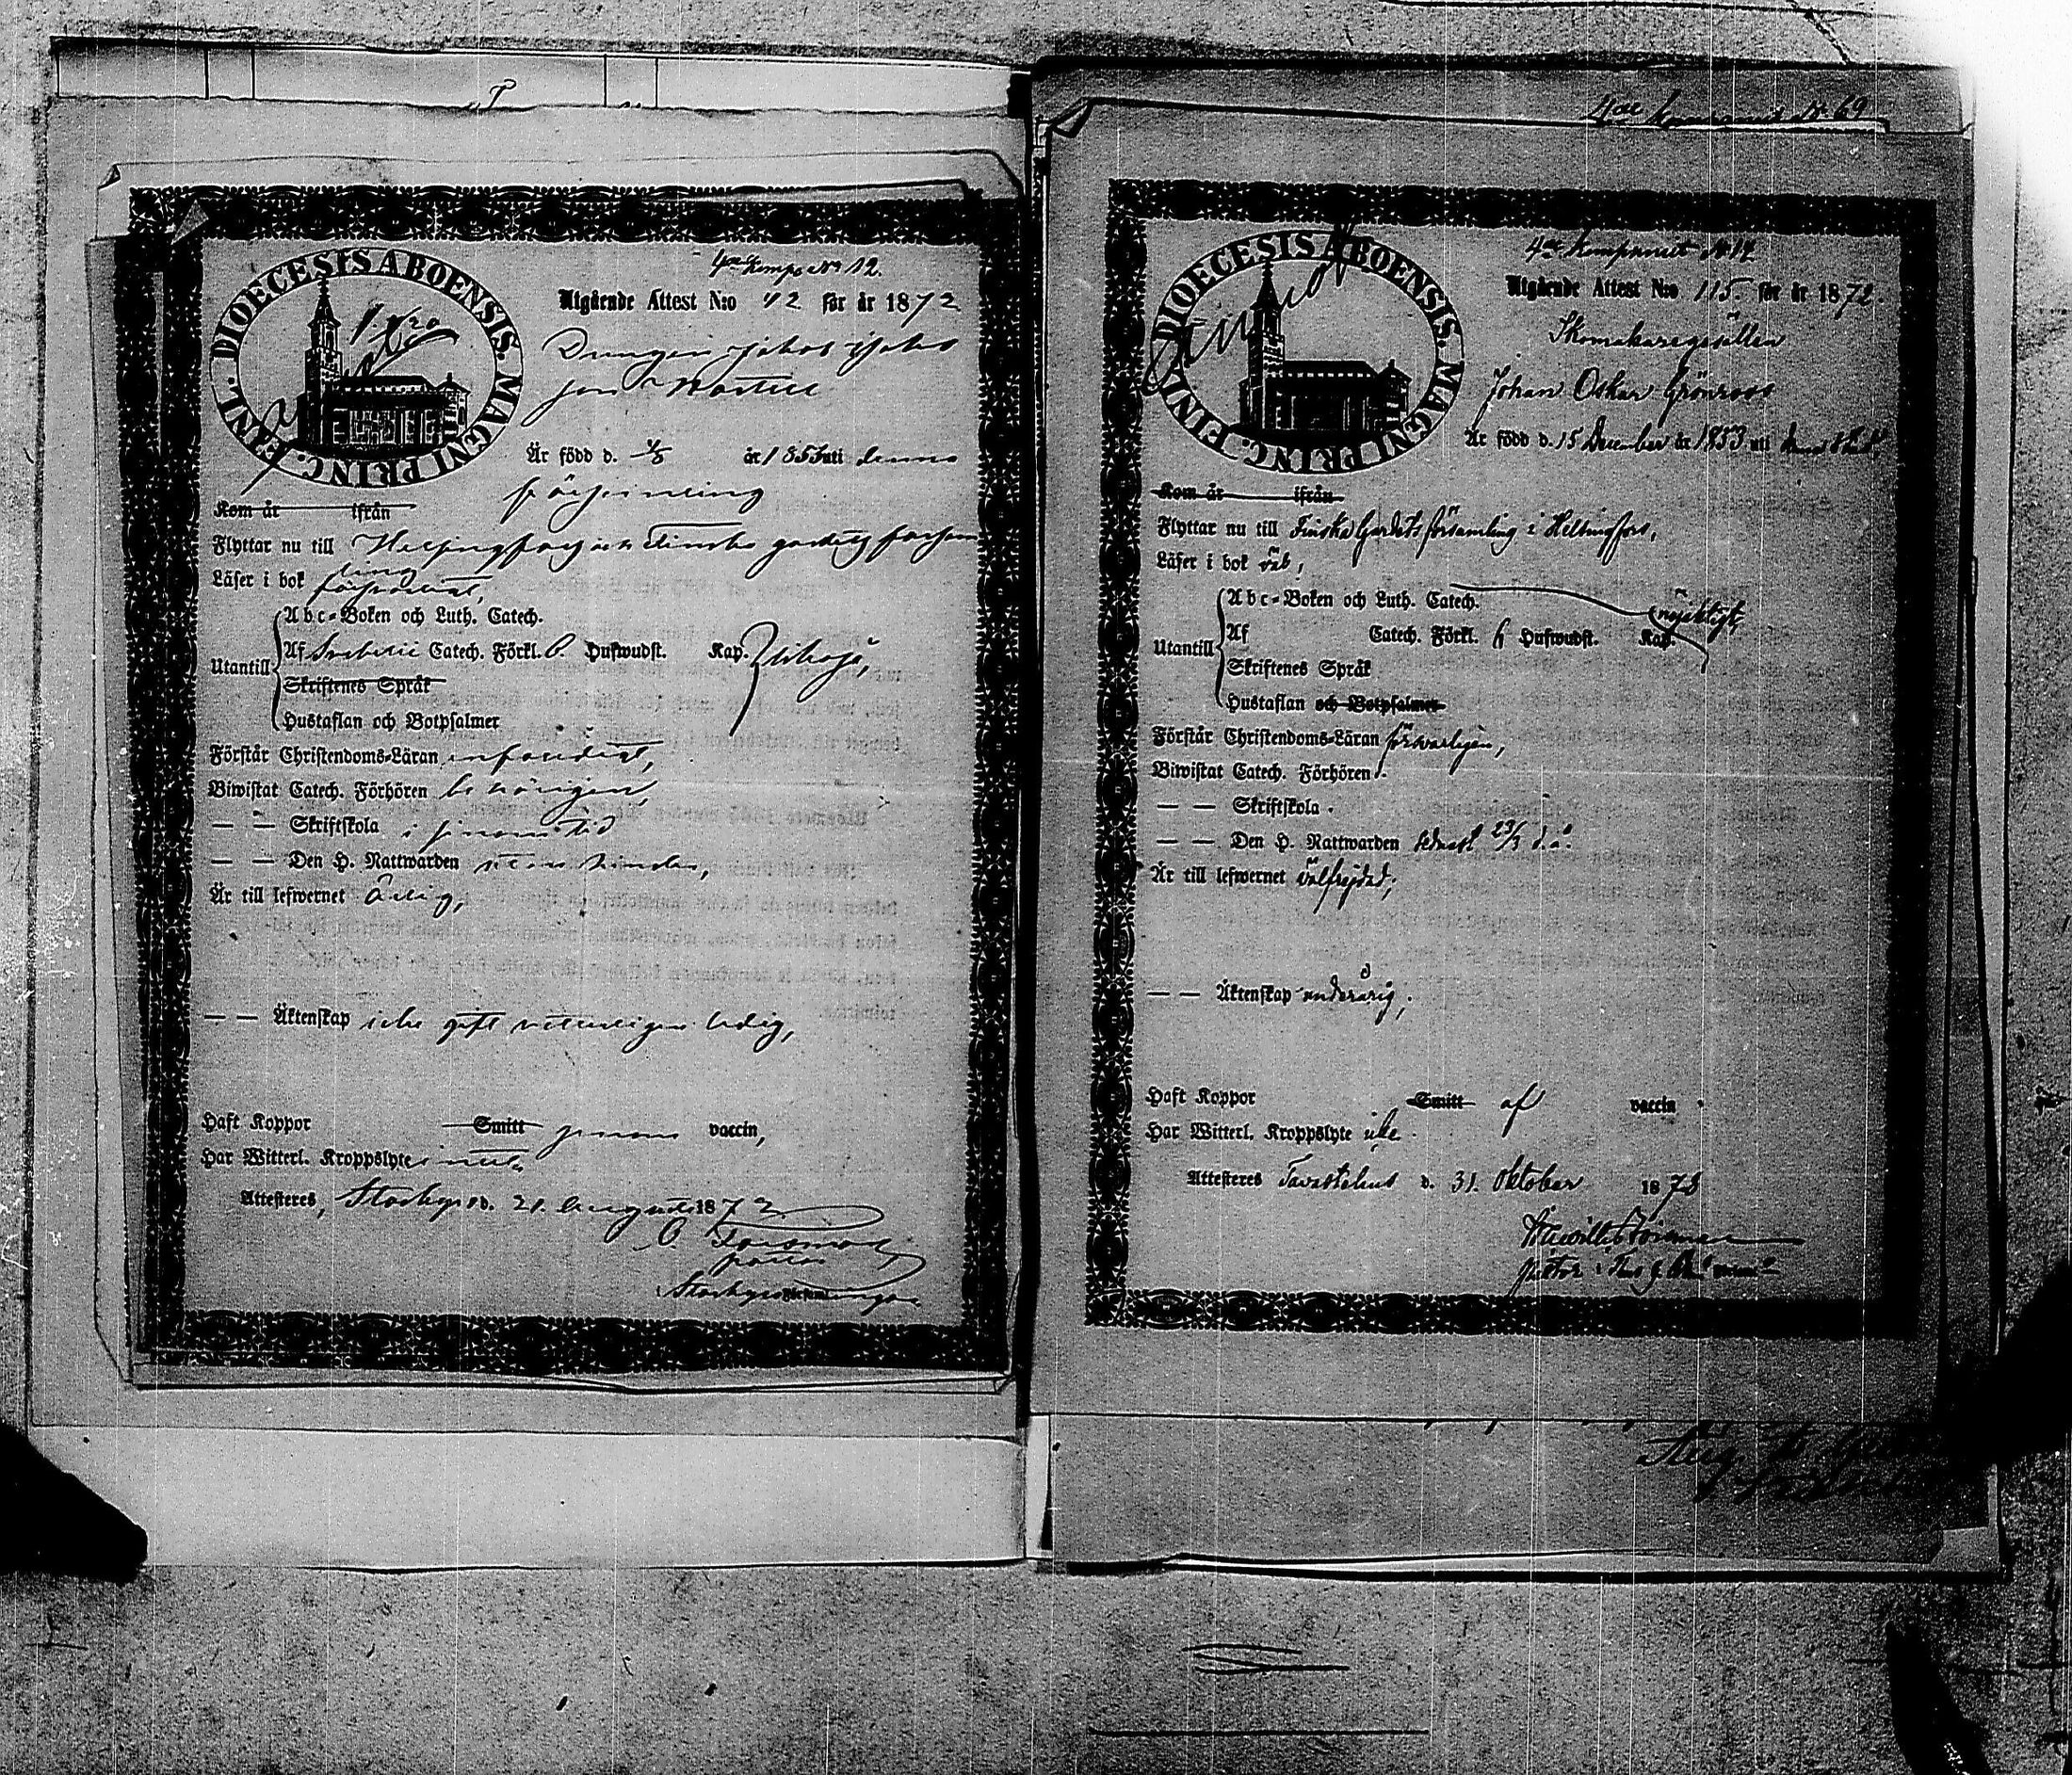 4de Komp. No 12.
DIOECESIS ABOENSIS. MAGNI PRINC. FINL.
Utgående Attest N:o 42 för år 1872
Drängen Jakob Jakobs
son
Är född d. år 1853 uti denna
församling
Kom år ifrån
Flyttar nu till Helsingfors och Finska gardets församling
Läser i bok försvarligt,
Abc-Boken och Luth. Catech.
Utantill
Af Svebelii Catech. Förkl. 6. Hufwudst. Kap. likaså,
Skriftenes Språk
Hustaflan och Botpsalmer
Förstår Christendoms-Läran enfaldigt,
Biwistat Catech. Förhören behörigen,
— — Skriftskola i sinom tid
— — Den H. Nattwarden utan hinder,
Är till lefwernet ärlig,
— — Äktenskap icke gift veterligen ledig,
Haft Koppor Smitt genom vaccin,
Har Witterl. Kroppslyte intet.
Attesteres, Storkyro d. 21. Augusti 1872
pastor
Storkyro Församlingar.
4de Kompaniet No 69
4de Kompaniet No 14
DIOECESIS ABOENSIS. MAGNI PRINC. FINL.
Utgående Attest N:o 115. för år 1872.
Skomakaregesällen
Johan Oskar Grönroos
Är född d. 15 December år 1853 uti denna stad
Kom år ifrån
Flyttar nu till Finska Gardets församling i Helsingfors,
Läser i bok väl,
Abc-Boken och Luth. Catech.
Utantill
Af Catech. Förkl. 6 Hufwudst. Kap. nöjaktigt,
Skriftenes Språk
Hustaflan och Botpsalmer
Förstår Christendoms-Läran försvarligen,
Biwistat Catech. Förhören
— — Skriftskola
— — Den H. Nattwarden senast 23/3 d. å.
Är till lefwernet välfrejdad,
— — Äktenskap underårig,
Haft Koppor Smitt af vaccin
Har Witterl. Kroppslyte icke.
Attesteres Tavastehus d. 31. Oktober 1872